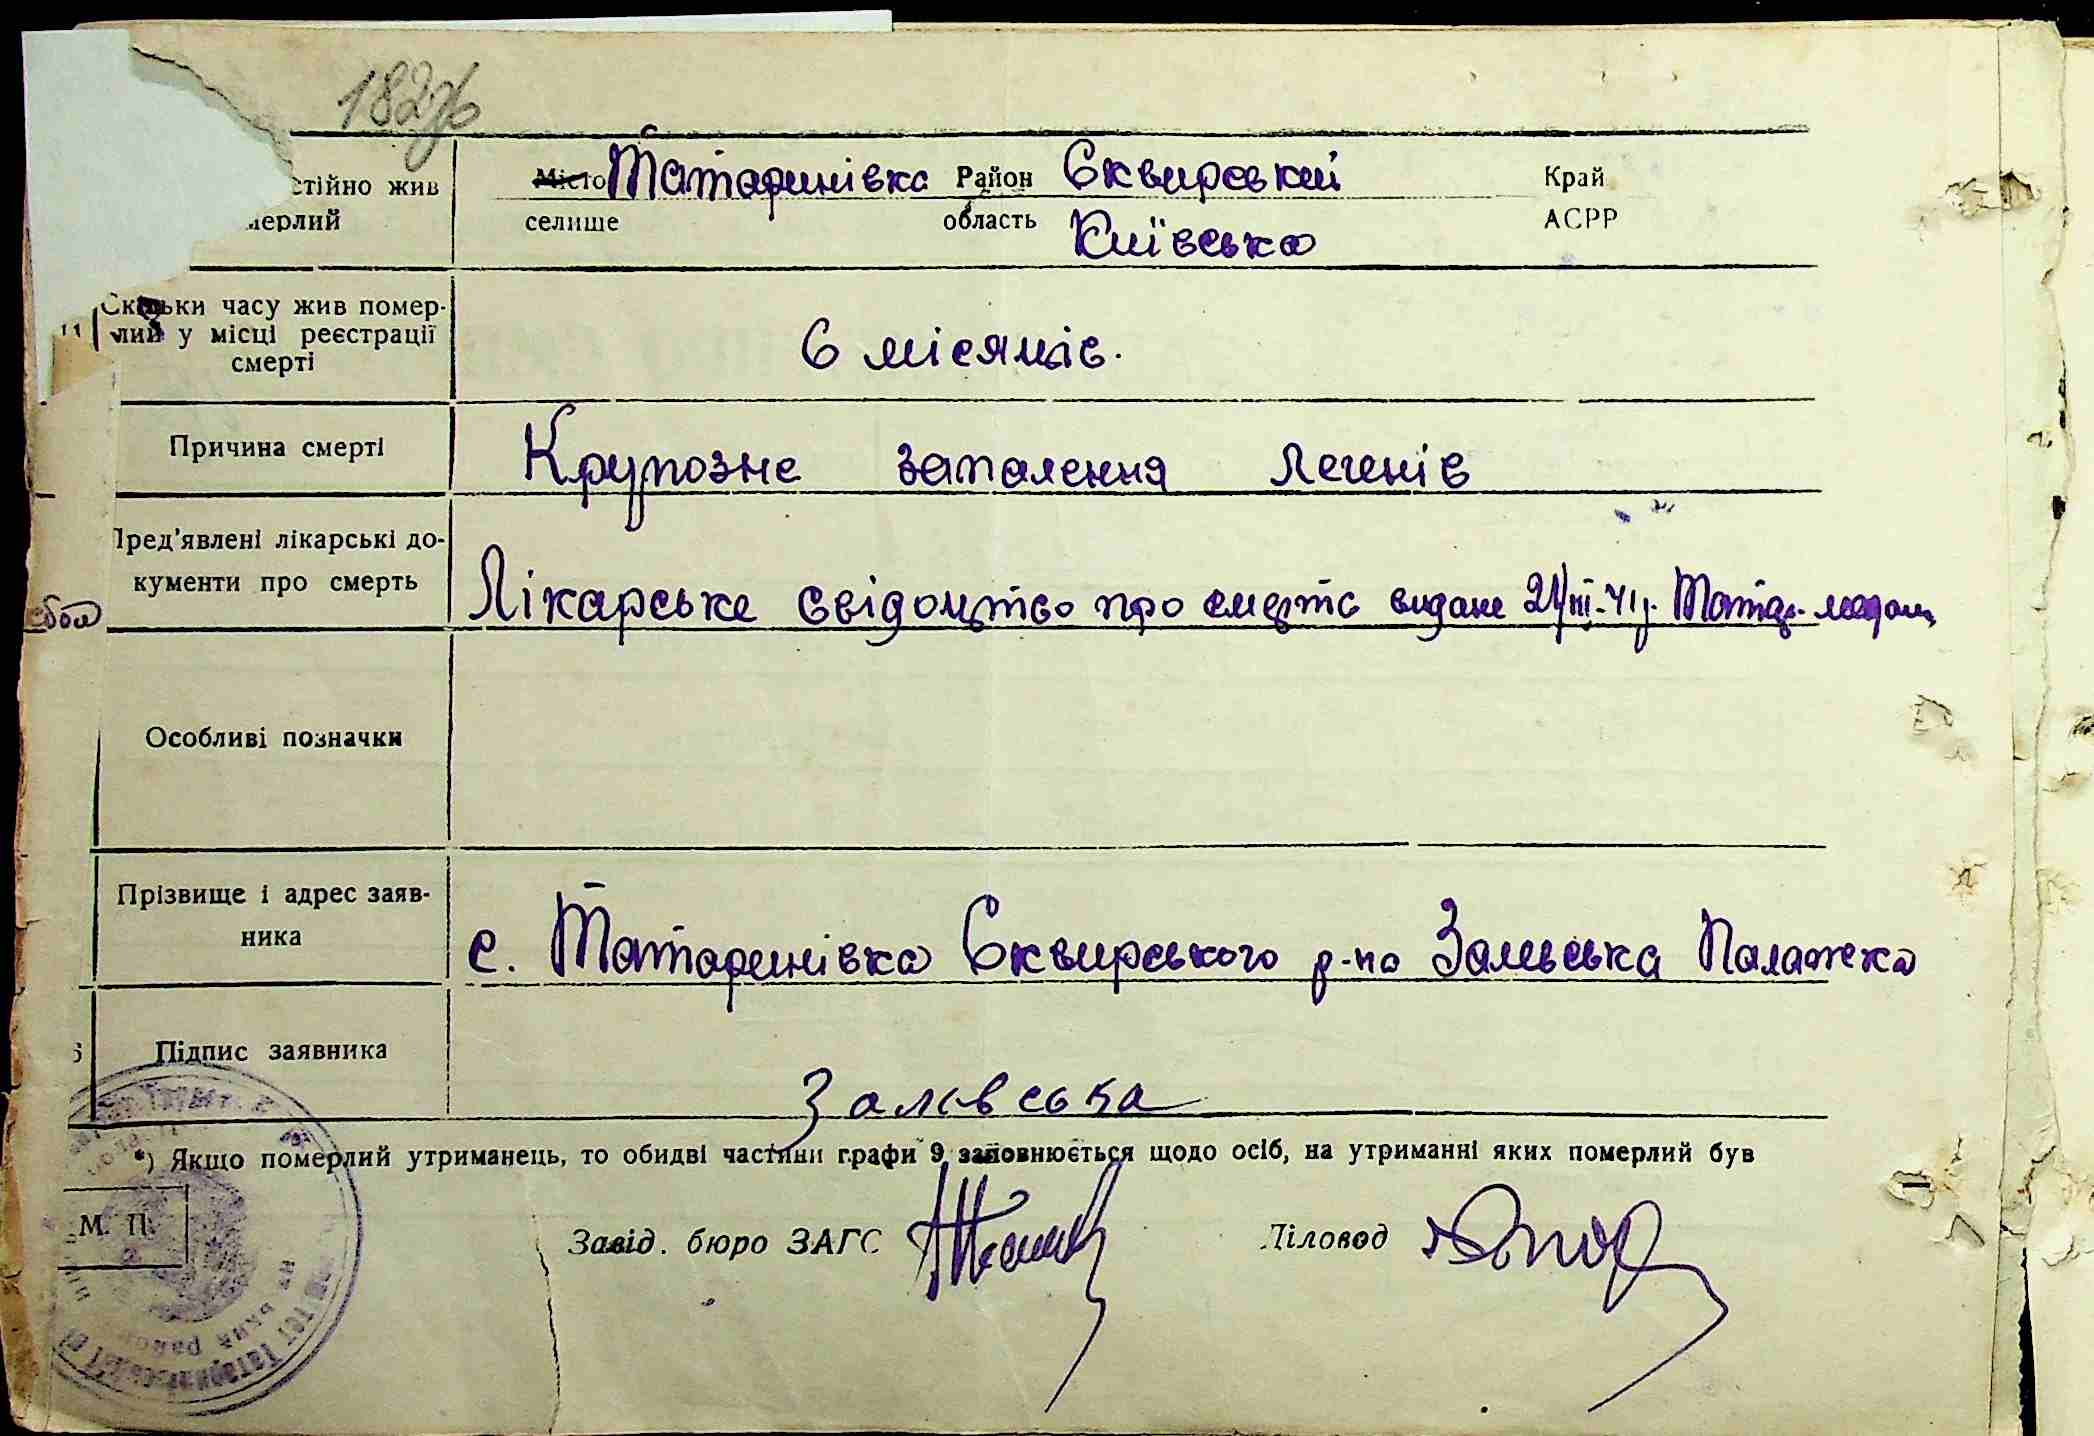 182
стійно жив
мерлий
Місто Татаринівка Район Сквирський Край
селище область Київська АСРР
11 Скільки часу жив помер-
лий у місці реєстрації
смерті
6 місяців.
Причина смерті
Крупозне запалення легенів
Пред'явлені лікарські до-
кументи про смерть
Лікарське свідоцтво про смерть видане 21/III-41р.
Особливі позначки
Прізвище і адрес заяв-
ника
с. Татаринівка Сквирського р-на Залевська Палажка
6 Підпис заявника
Залевська
*) Якщо померлий утриманець, то обидві частини графи 9 заповнюється щодо осіб, на утриманні яких померлий був
М. П.
Завід. бюро ЗАГС
Діловод